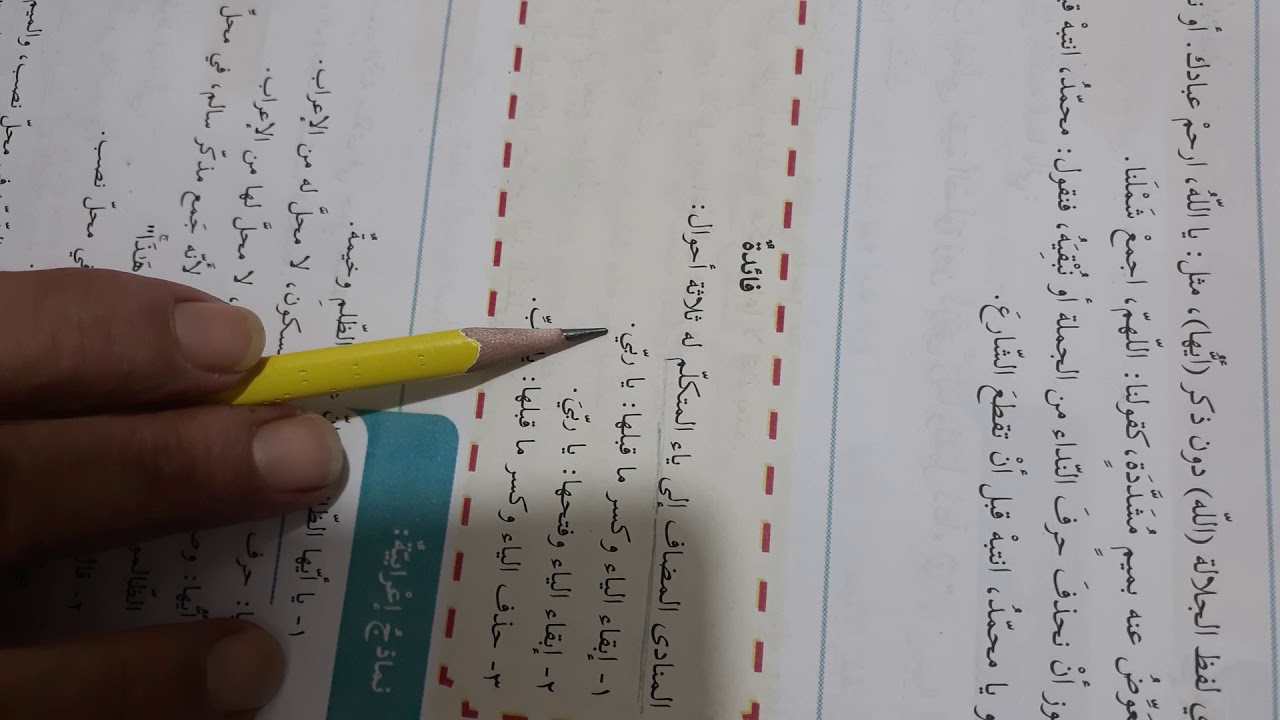 لفظ الجلالة (اللّه) دون ذكر (أيُّها)، مثل: يا اللّهُ، ارحمْ عبادك. أو
عنه بميم مُشدَّدَةٍ، كقولنا: اللّهمّ، اجمعْ شَمْلَنا.
أنْ نحذفَ حرفَ النّداء من الجملة أو نُبْقِيَهُ، فنقول: محمّدُ، انتبهْ
يا محمّدُ، انتبهْ قبلَ أنْ تقطعَ الشّارعَ.
فائدةٌ
المنادى المضاف إلى ياء المتكلّم له ثلاثة أحوال:
١- إبقاء الياء وكسر ما قبلها: يا ربّي.
٢- إبقاء الياء وفتحها: يا ربّيَ.
٣- حذف الياء وكسر ما قبلها:
نماذجُ إعْرابيّة:
١- يا أيّها وخيمةٌ.
حرف لا محلَّ له من الإعراب.
أيُّها: لا محلَّ لها من الإعراب.
لأنّه جَمع مذكّر سالم، في محلّ
هَذَا"
في محلّ نصب.
نصب، والميم